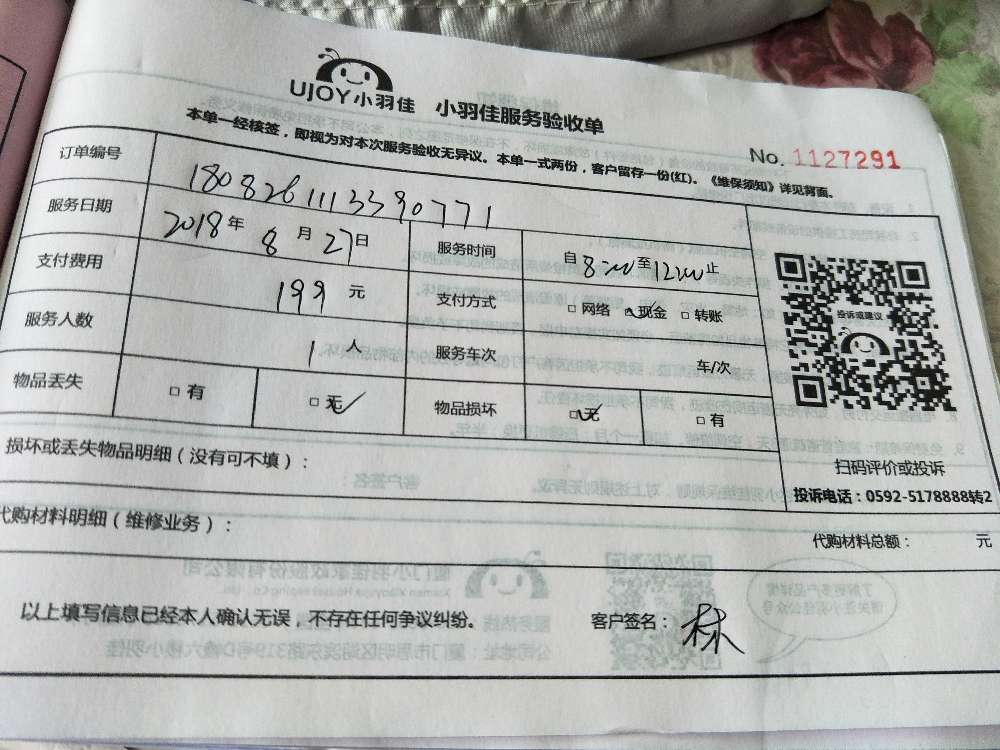 UJOY小羽佳 小羽佳服务验收单
本单一经核签，即视为对本次服务验收无异议。本单一式两份，客户留存一份(红)。《维保须知》详见背面。
No. 1127291
订单编号 1808261113390771
服务日期 2018年8月27日 服务时间 自8:00至12:00止
支付费用 199元 支付方式 □网络 □现金 □转账
服务人数 1人 服务车次 车/次
物品丢失 □有 □无✓ 物品损坏 □无 □有
投诉或建议
扫码评价或投诉
投诉电话：0592-5178888转2
损坏或丢失物品明细（没有可不填）：
代购材料明细（维修业务）：
代购材料总额： 元
以上填写信息已经本人确认无误，不存在任何争议纠纷。 客户签名：林